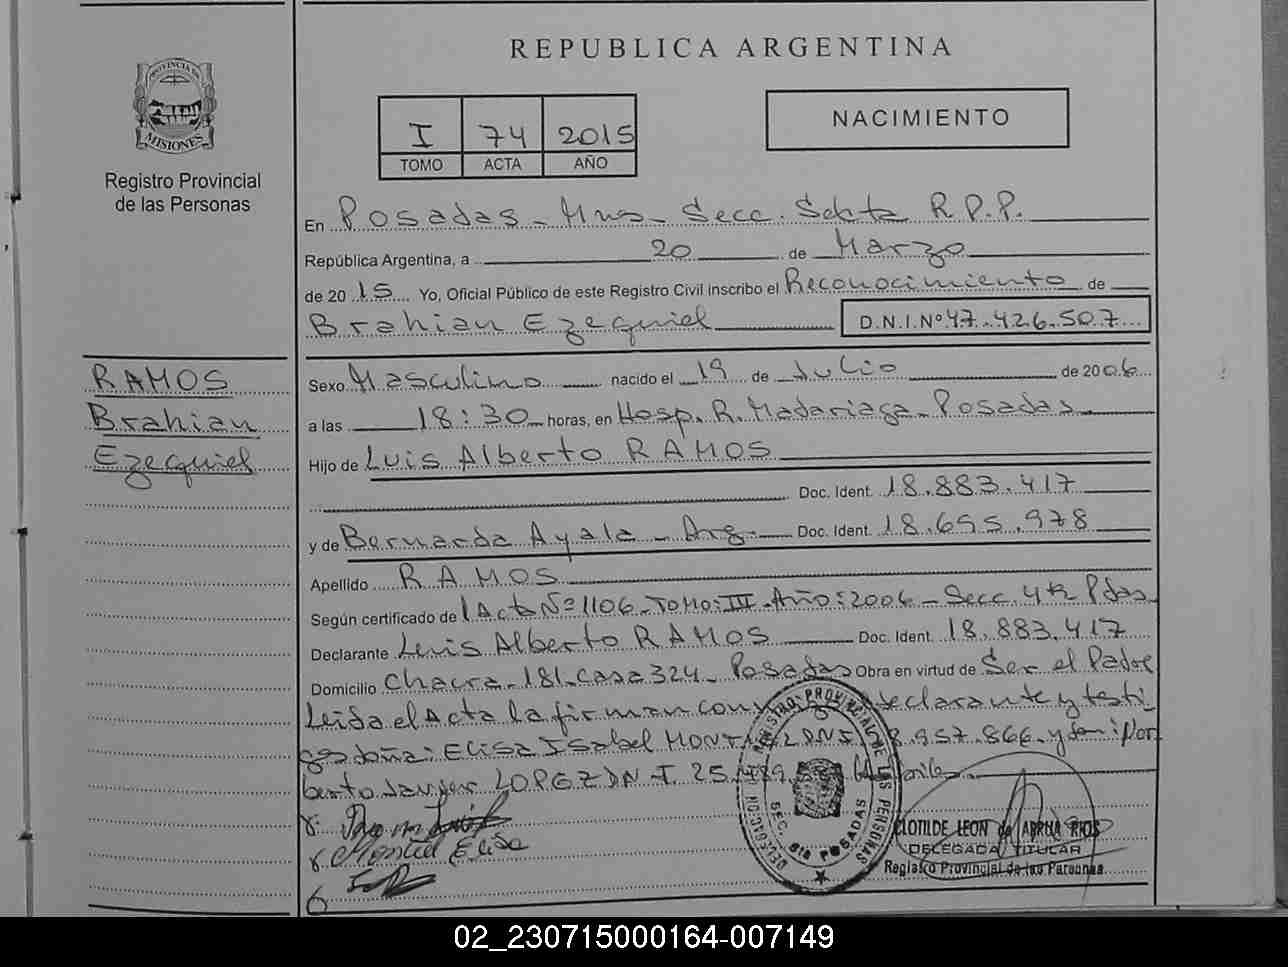 REPUBLICA ARGENTINA
PROVINCIA DE
MISIONES
Registro Provincial
de las Personas
I 74 2015
TOMO ACTA AÑO
NACIMIENTO
En Posadas - Mnes - Secc. Sexta R.P.P.
República Argentina, a 20 de Marzo
de 2015 Yo, Oficial Público de este Registro Civil inscribo el Reconocimiento de
Brahian Ezequiel D.N.I.Nº 47.426.507
RAMOS
Brahian
Ezequiel
Sexo Masculino nacido el 19 de Julio de 2006
a las 18:30 horas, en Hosp. R. Madariaga - Posadas
Hijo de Luis Alberto RAMOS
Doc. Ident. 18.883.417
y de Bernarda Ayala - Arg. Doc. Ident. 18.695.978
Apellido RAMOS
Según certificado de Acta Nº 1106 - Tomo: III - Año: 2006 - Secc. 4ta Pdas
Declarante Luis Alberto RAMOS Doc. Ident. 18.883.417
Domicilio Chacra - 181 - Casa 324 - Posadas Obra en virtud de Ser el Padre
Leida el Acta la firman con declarante y testi-
gos doña: Elisa Isabel DNI 8.957.866 y don: Nor
berto Javier LOPEZ DN.I. 25
Elisa
REGISTRO PROVINCIAL DE LAS PERSONAS
DELEGACION
SEC. 6ta POSADAS
CLOTILDE LEON de RIOS
DELEGADA TITULAR
Registro Provincial de las Personas
02_230715000164-007149